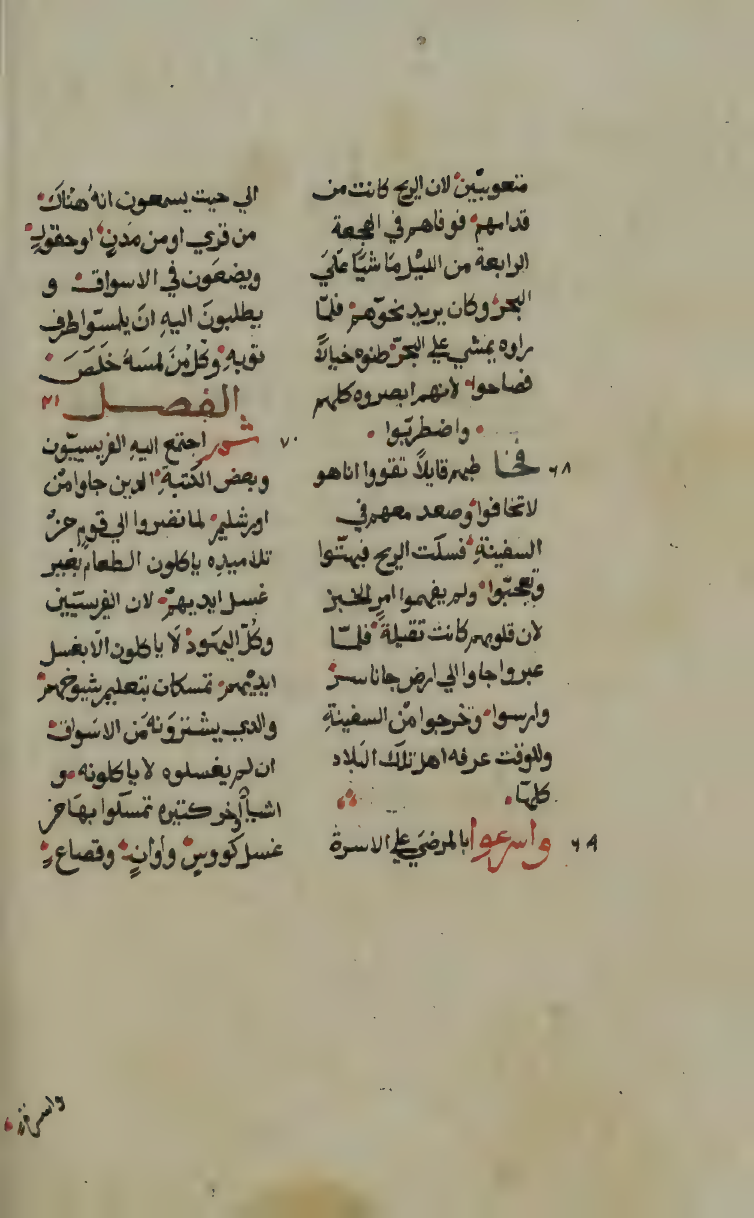 متعوبين لان الريح كانت من
قدامهم فوفاهم في الهجعة
الرابعة من الليل ماشيًا علي
البحر وكان يريد نحوهم فلما
راوه يمشي علي البحر ظنوه خيالاً
فصاحوا لانهم ابصروه كلهم
واضطربوا
٦٨ فخاطبهم قايلاً تقووا اناهو
لاتخافوا وصعد معهم في
السفينة فسكت الريح فبهتوا
وتعجبوا ولم يفهموا امر الخبز
لان قلوبهم كانت ثقيلة فلما
عبروا جاوا الي ارض جاناسر
وارسوا وخرجوا من السفينة
وللوقت عرفه اهل تلك البلاد
كلها
٦٩ واسرعوا بالمرضي علي الاسرة
الي حيت يسمعون انه هناك
من قري اومن مدن اوحقول
ويضعون في الاسواق و
يطلبون اليه ان يلمسوا طرف
توبه وكل من لمسه خلص
الفصل ٢١
٧٠ ثم اجتمع اليه الفريسيون
وبعض الكتبة الدين جاوا من
اورشليم لما نضروا الي قوم من
تلاميده ياكلون الطعام بغير
غسل ايديهم لان الفرسيين
وكل اليهود لا ياكلون الا بغسل
ايديهم تمسكات بتعليم شيوخهم
والدي يشترونه من الاسواق
ان لم يغسلوه لا ياكلونه و
اشيا اخر كتيره تمسكوا بها من
غسل كووس واوان وقصاع
واسرة